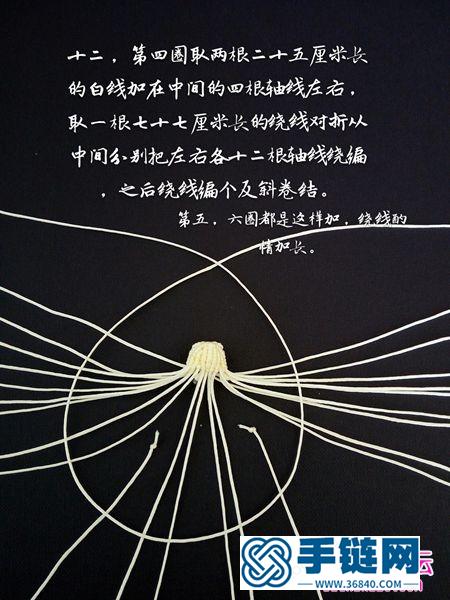 十二，第四圈取两根二十五厘米长
的白线加在中间的四根轴线左右，
取一根七十七厘米长的绕线对折从
中间分别把左右各十二根轴线绕编
，之后绕线编个反斜卷结。
第五，六圈都是这样加，绕线酌
情加长。
手链网
www.36840.com